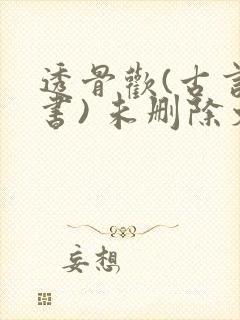 透骨歡(古言
書)未删除
妄想